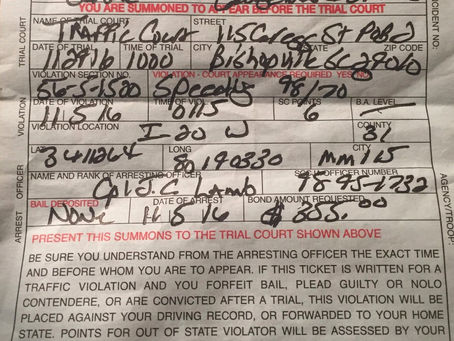 YOU ARE SUMMONED TO APPEAR BEFORE THE TRIAL COURT
TRIAL COURT
NAME OF TRIAL COURT STREET
Traffic Court 115 College St
DATE OF TRIAL TIME OF TRIAL CITY ZIP CODE
112916 1000 Bishopville SC 29010
VIOLATION
VIOLATION SECTION NO. VIOLATION - COURT APPEARANCE REQUIRED YES NO
56-5-1520 Speeding 98/70
TIME OF VIOL SC POINTS B.A. LEVEL
11.5.16 0115 6 —
VIOLATION LOCATION COUNTY
I-20 W 31
LONG CITY
3411264 80190330 mm 115
ARREST OFFICER
NAME AND RANK OF ARRESTING OFFICER NUMBER
Cpl J.C Lamb 1895-1732
BAIL DEPOSITED DATE OF ARREST BOND AMOUNT REQUIRED
None 11.5.16 $ 355.00
PRESENT THIS SUMMONS TO THE TRIAL COURT SHOWN ABOVE
BE SURE YOU UNDERSTAND FROM THE ARRESTING OFFICER THE EXACT TIME
AND BEFORE WHOM YOU ARE TO APPEAR. IF THIS TICKET IS WRITTEN FOR A
TRAFFIC VIOLATION AND YOU FORFEIT BAIL, PLEAD GUILTY OR NOLO
CONTENDERE, OR ARE CONVICTED AFTER A TRIAL, THIS VIOLATION WILL BE
PLACED AGAINST YOUR DRIVING RECORD, OR FORWARDED TO YOUR HOME
STATE. POINTS FOR OUT OF STATE VIOLATOR WILL BE ASSESSED BY YOUR
INCIDENT NO:
AGENCY/TROOP: